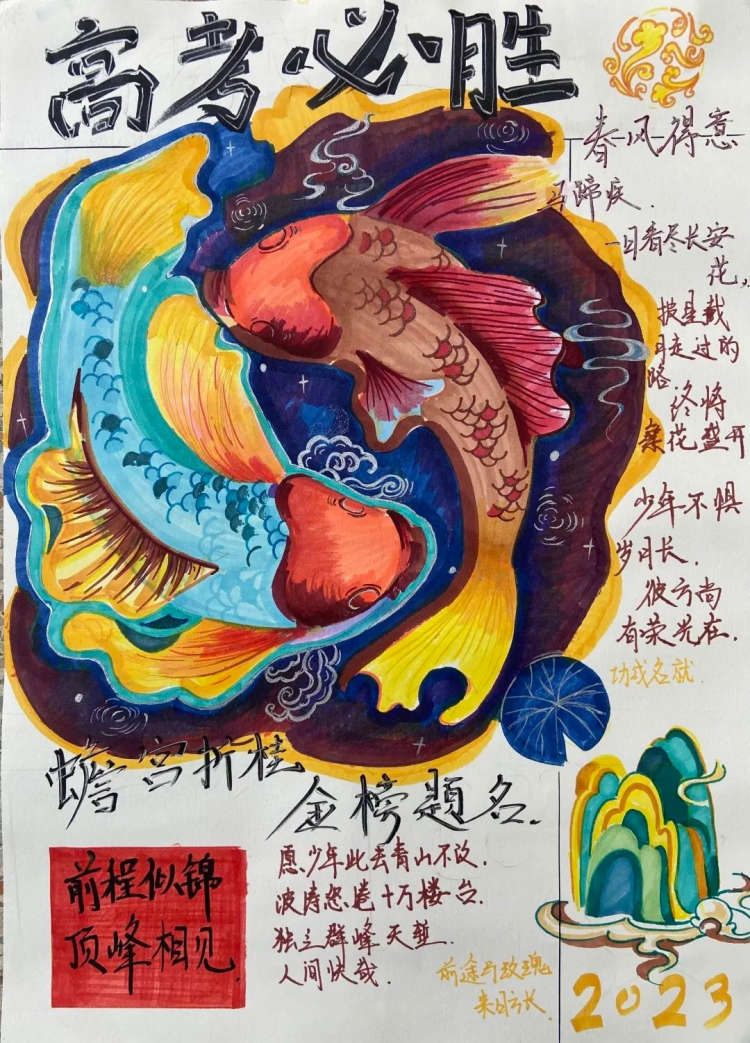 高考必胜
春风得意
马蹄疾.
一日看尽长安
花,
披星戴
月走过的
路
终将
繁花盛开
少年不惧
岁月长.
彼方尚
有荣光在.
功成名就
蟾宫折桂
金榜题名.
前程似锦
顶峰相见.
愿少年此去青山不改.
波涛怒卷十万楼台.
独立群峰天堑.
人间快哉.
前途与玫瑰
来日方长.
2023